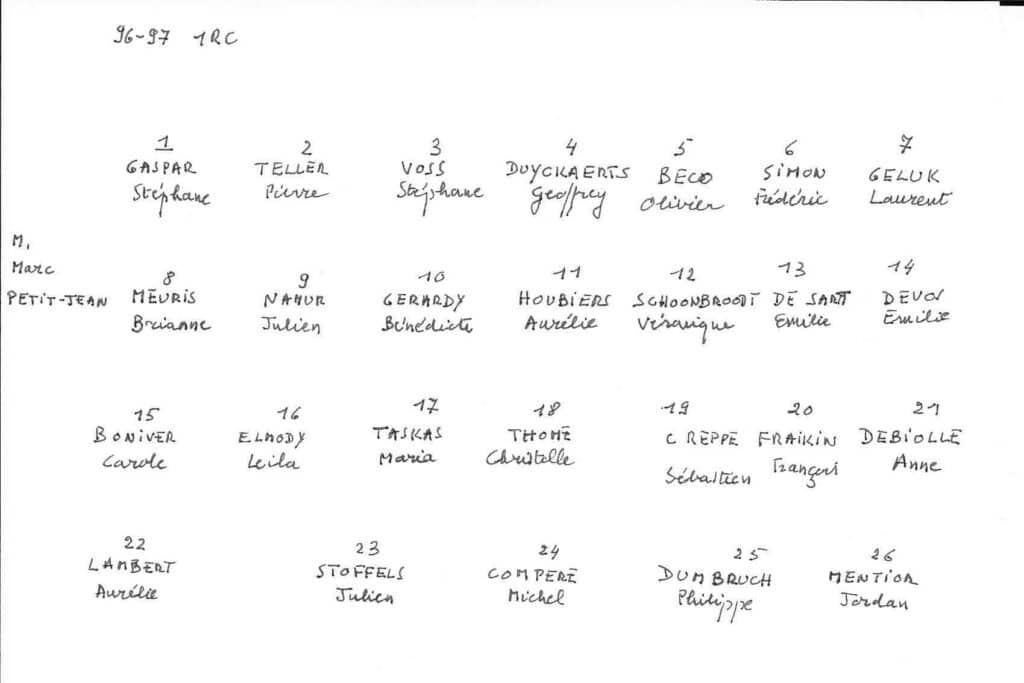 96-97 1RC
1 2 3 4 5 6 7
GASPAR TELLER VOSS DUYCKAERTS BECO SIMON GELUK
Stéphane Pierre Stéphane Geoffrey Olivier Frédéric Laurent
M.
Marc
PETIT-JEAN
8 9 10 11 12 13 14
MEURIS NAMUR GERARDY HOUBIERS SCHOONBROODT DE SART DEVOS
Brianne Julien Bénédicte Aurélie Véronique Emilie Emilie
15 16 17 18 19 20 21
BONIVER ELMODY TASKAS THOMÉ CREPPE FRAIKIN DEBIOLLE
Carole Leila Maria Christelle Sébastien François Anne
22 23 24 25 26
LAMBERT STOFFELS COMPERE DUMBRUCH MENTIOR
Aurélie Julien Michel Philippe Jordan